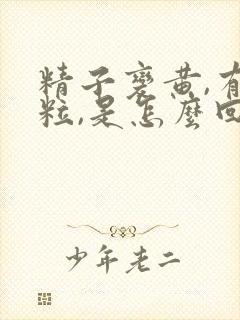 精子变黄,有
粒,是怎麼回
少年老二